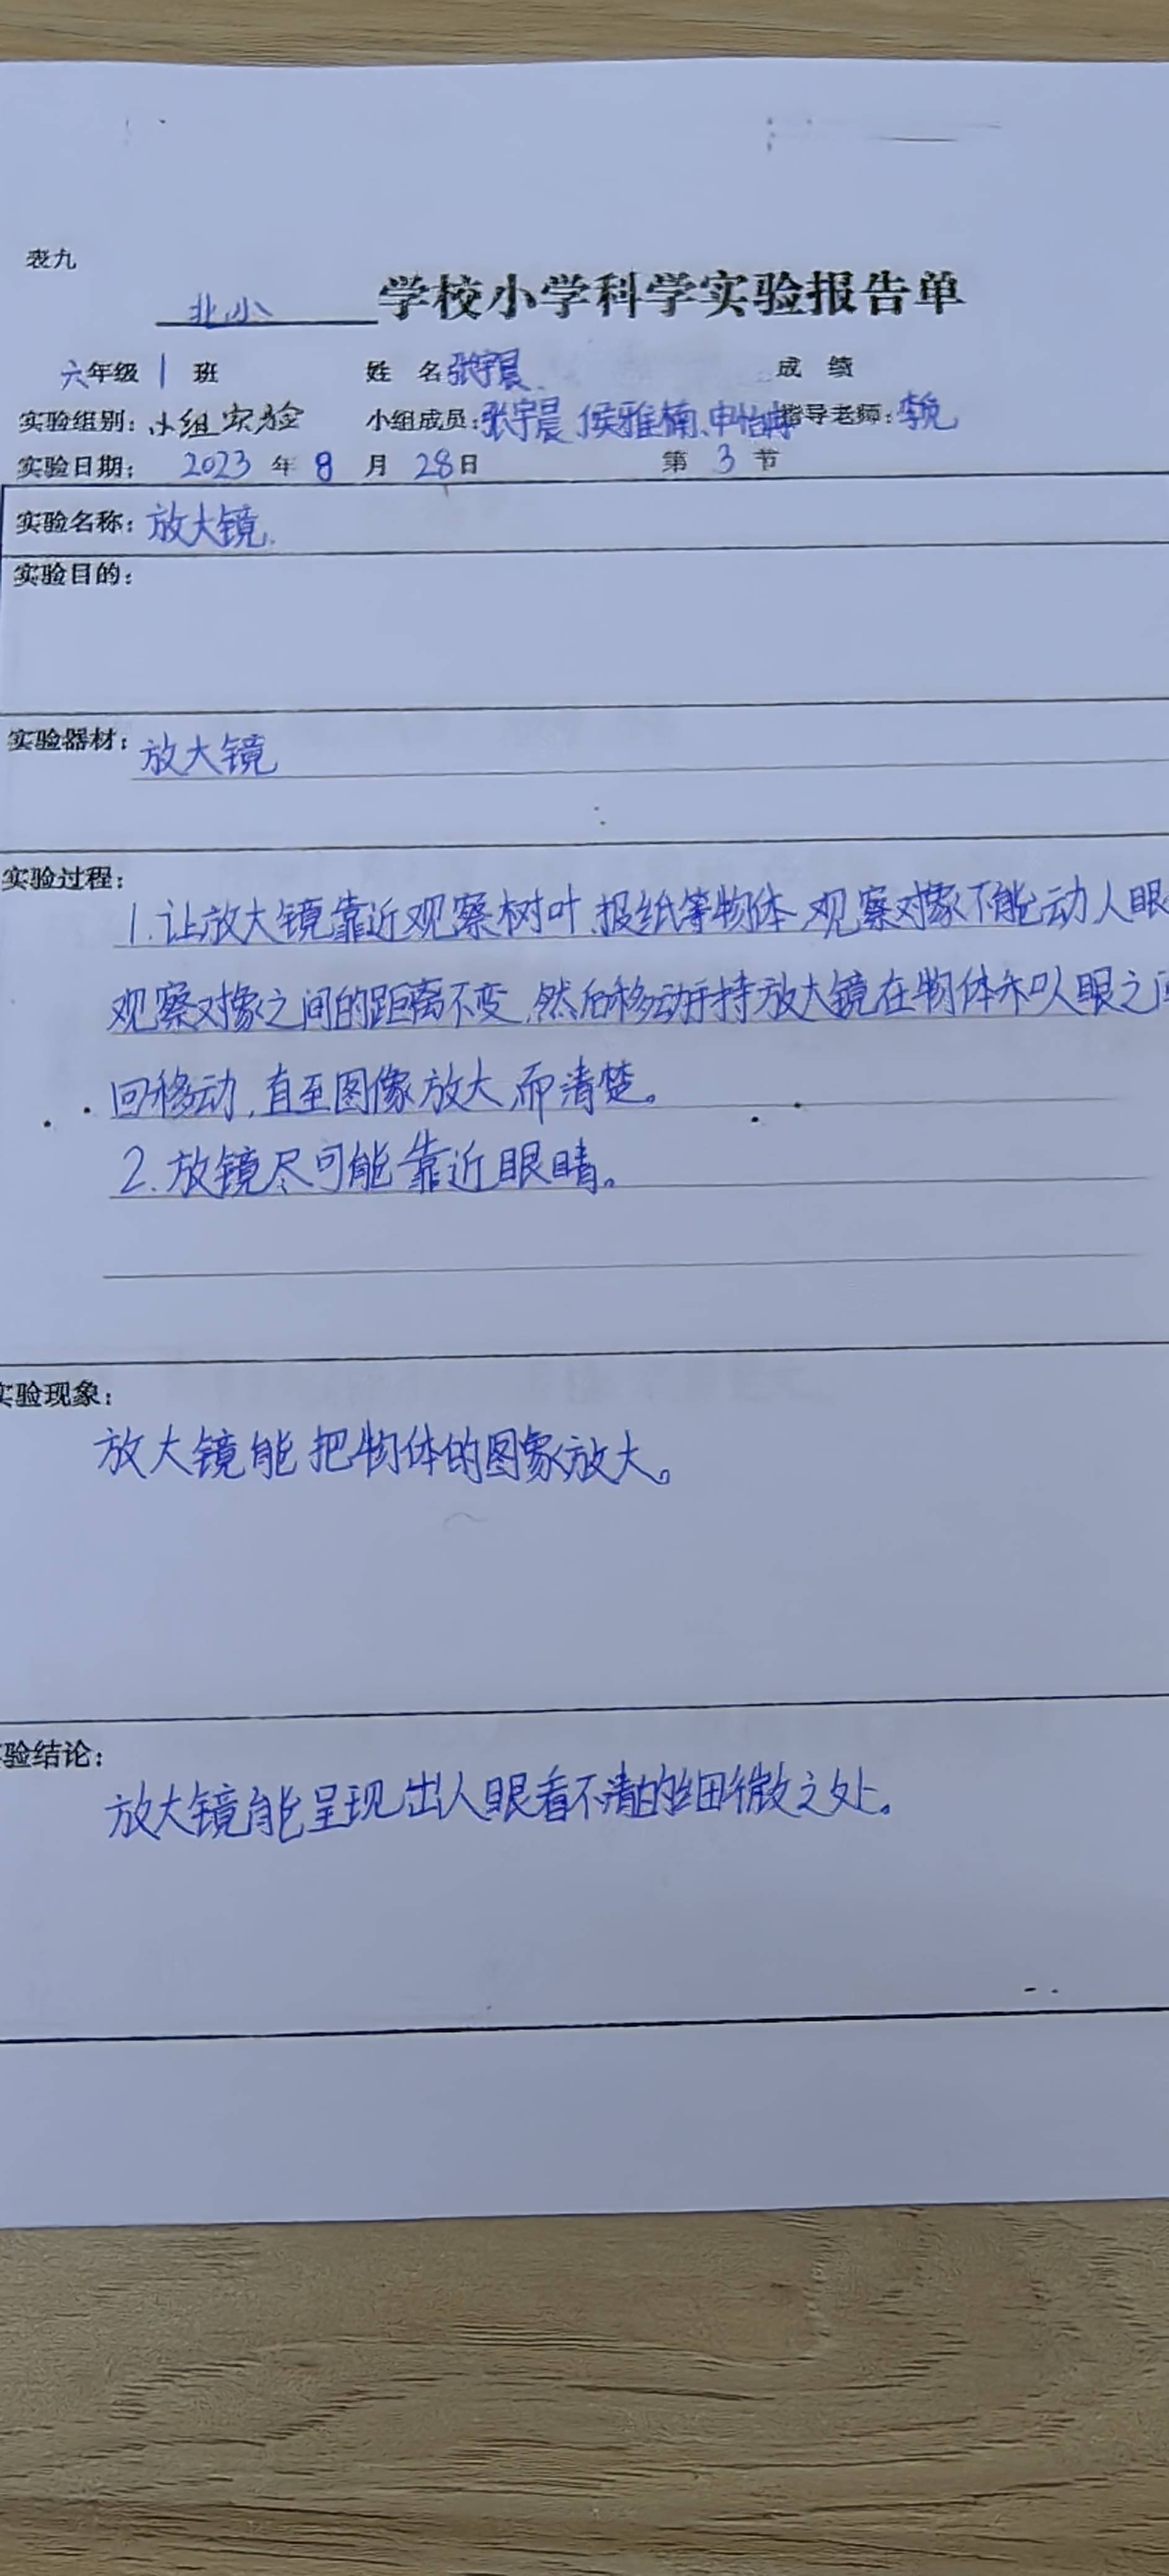 表九
北小 学校小学科学实验报告单
六年级 1 班 姓 名 张宇晨 成 绩
实验组别: 小组实验 小组成员: 张宇晨、侯雅楠、申怡 指导老师: 李
实验日期: 2023 年 8 月 28日 第 3 节
实验名称: 放大镜.
实验目的:
实验器材: 放大镜
实验过程:
1.让放大镜靠近观察树叶、报纸等物体,观察对象不能动人眼
观察对象之间的距离不变,然后移动手持放大镜在物体和人眼之
回移动,直至图像放大而清楚。
2.放镜尽可能靠近眼睛。
实验现象:
放大镜能把物体的图象放大。
验结论:
放大镜能呈现出人眼看不清的细微之处。